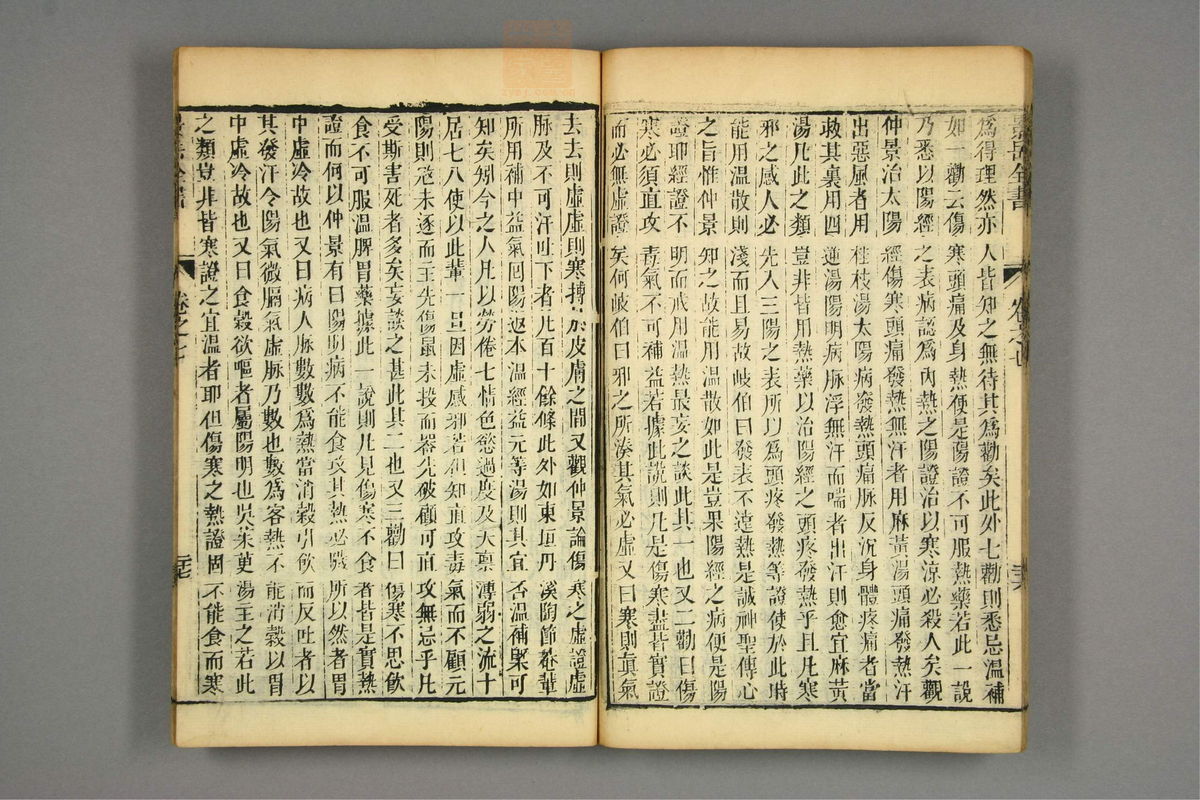 為得理然亦人皆知之無待其為勸矣此外七勸則悉忌溫補
如一勸云傷寒頭痛及身熱便是陽證不可服熱藥若此一說
乃悉以陽經之表病認為內熱之陽證治以寒涼必殺人矣觀
仲景治太陽經傷寒頭痛發熱無汗者用麻黃湯頭痛發熱汗
出惡風者用桂枝湯太陽病發熱頭痛脉反沉身體疼痛者當
救其裏用四逆湯陽明病脉浮無汗而喘者出汗則愈宜麻黃
湯凡此之類豈非皆用熱藥以治陽經之頭疼發熱乎且凡寒
邪之感人必先入三陽之表所以為頭疼發熱等證使於此時
能用溫散則淺而且易故岐伯曰發表不遠熱是誠神聖傳心
之旨惟仲景知之故能用溫散如此是豈果陽經之病便是陽
證耶經證不明而戒用溫熱最妄之談此其一也又二勸曰傷
寒必須直攻毒氣不可補益若據此說則凡是傷寒盡皆實證
而必無虛證矣何岐伯曰邪之所湊其氣必虛又曰寒則眞氣
去去則虛虛則寒搏於皮膚之間又觀仲景論傷寒之虛證虛
脉及不可汗吐下者凡百十餘條此外如東垣丹溪陶節菴輩
所用補中益氣回陽返本溫經益元等湯則其宜否溫補槩可
知矣矧今之人凡以勞倦七情色慾過度及天稟薄弱之流十
居七八使以此輩一旦因虛感邪若但知直攻毒氣而不顧元
陽則寇未逐而主先傷鼠未投而器先破顧可直攻無忌乎凡
受斯害死者多矣妄談之甚此其二也又三勸曰傷寒不思飲
食不可服溫脾胃藥據此一說則凡見傷寒不食者皆是實熱
證而何以仲景有曰陽明病不能食攻其熱必噦所以然者胃
中虛冷故也又曰病人脉數數為熱當消穀引飲而反吐者以
其發汗令陽氣微膈氣虛脉乃數也數為客熱不能消穀以胃
中虛冷故也又曰食穀欲嘔者屬陽明也吳茱萸湯主之若此
之類豈非皆寒證之宜溫者耶但傷寒之熱證固不能食而寒